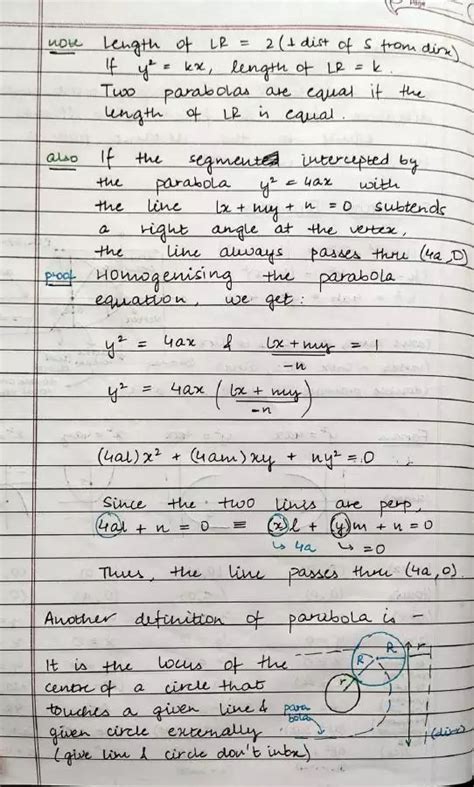 Page
note Length of LR = 2 (⊥ dist of S from dirx)
If y² = kx, length of LR = k.
Two parabolas are equal if the
length of LR is equal.
also If the segment intercepted by
the parabola y² = 4ax with
the line lx + my + n = 0 subtends
a right angle at the vertex,
the line always passes thru (4a, 0)
proof Homogenising the parabola
equation, we get:
y² = 4ax & lx + my / -n = 1
y² = 4ax (lx + my / -n)
(4al)x² + (4am)xy + ny² = 0
Since the two lines are perp,
4al + n = 0 ≡ (x)l + (y)m + n = 0
↳ 4a ↳ = 0
Thus, the line passes thru (4a, 0).
Another definition of parabola is -
It is the locus of the
centre of a circle that
touches a given line &
given circle externally
(give line & circle don't intx)
R R r
r
para
bola
(dirx)